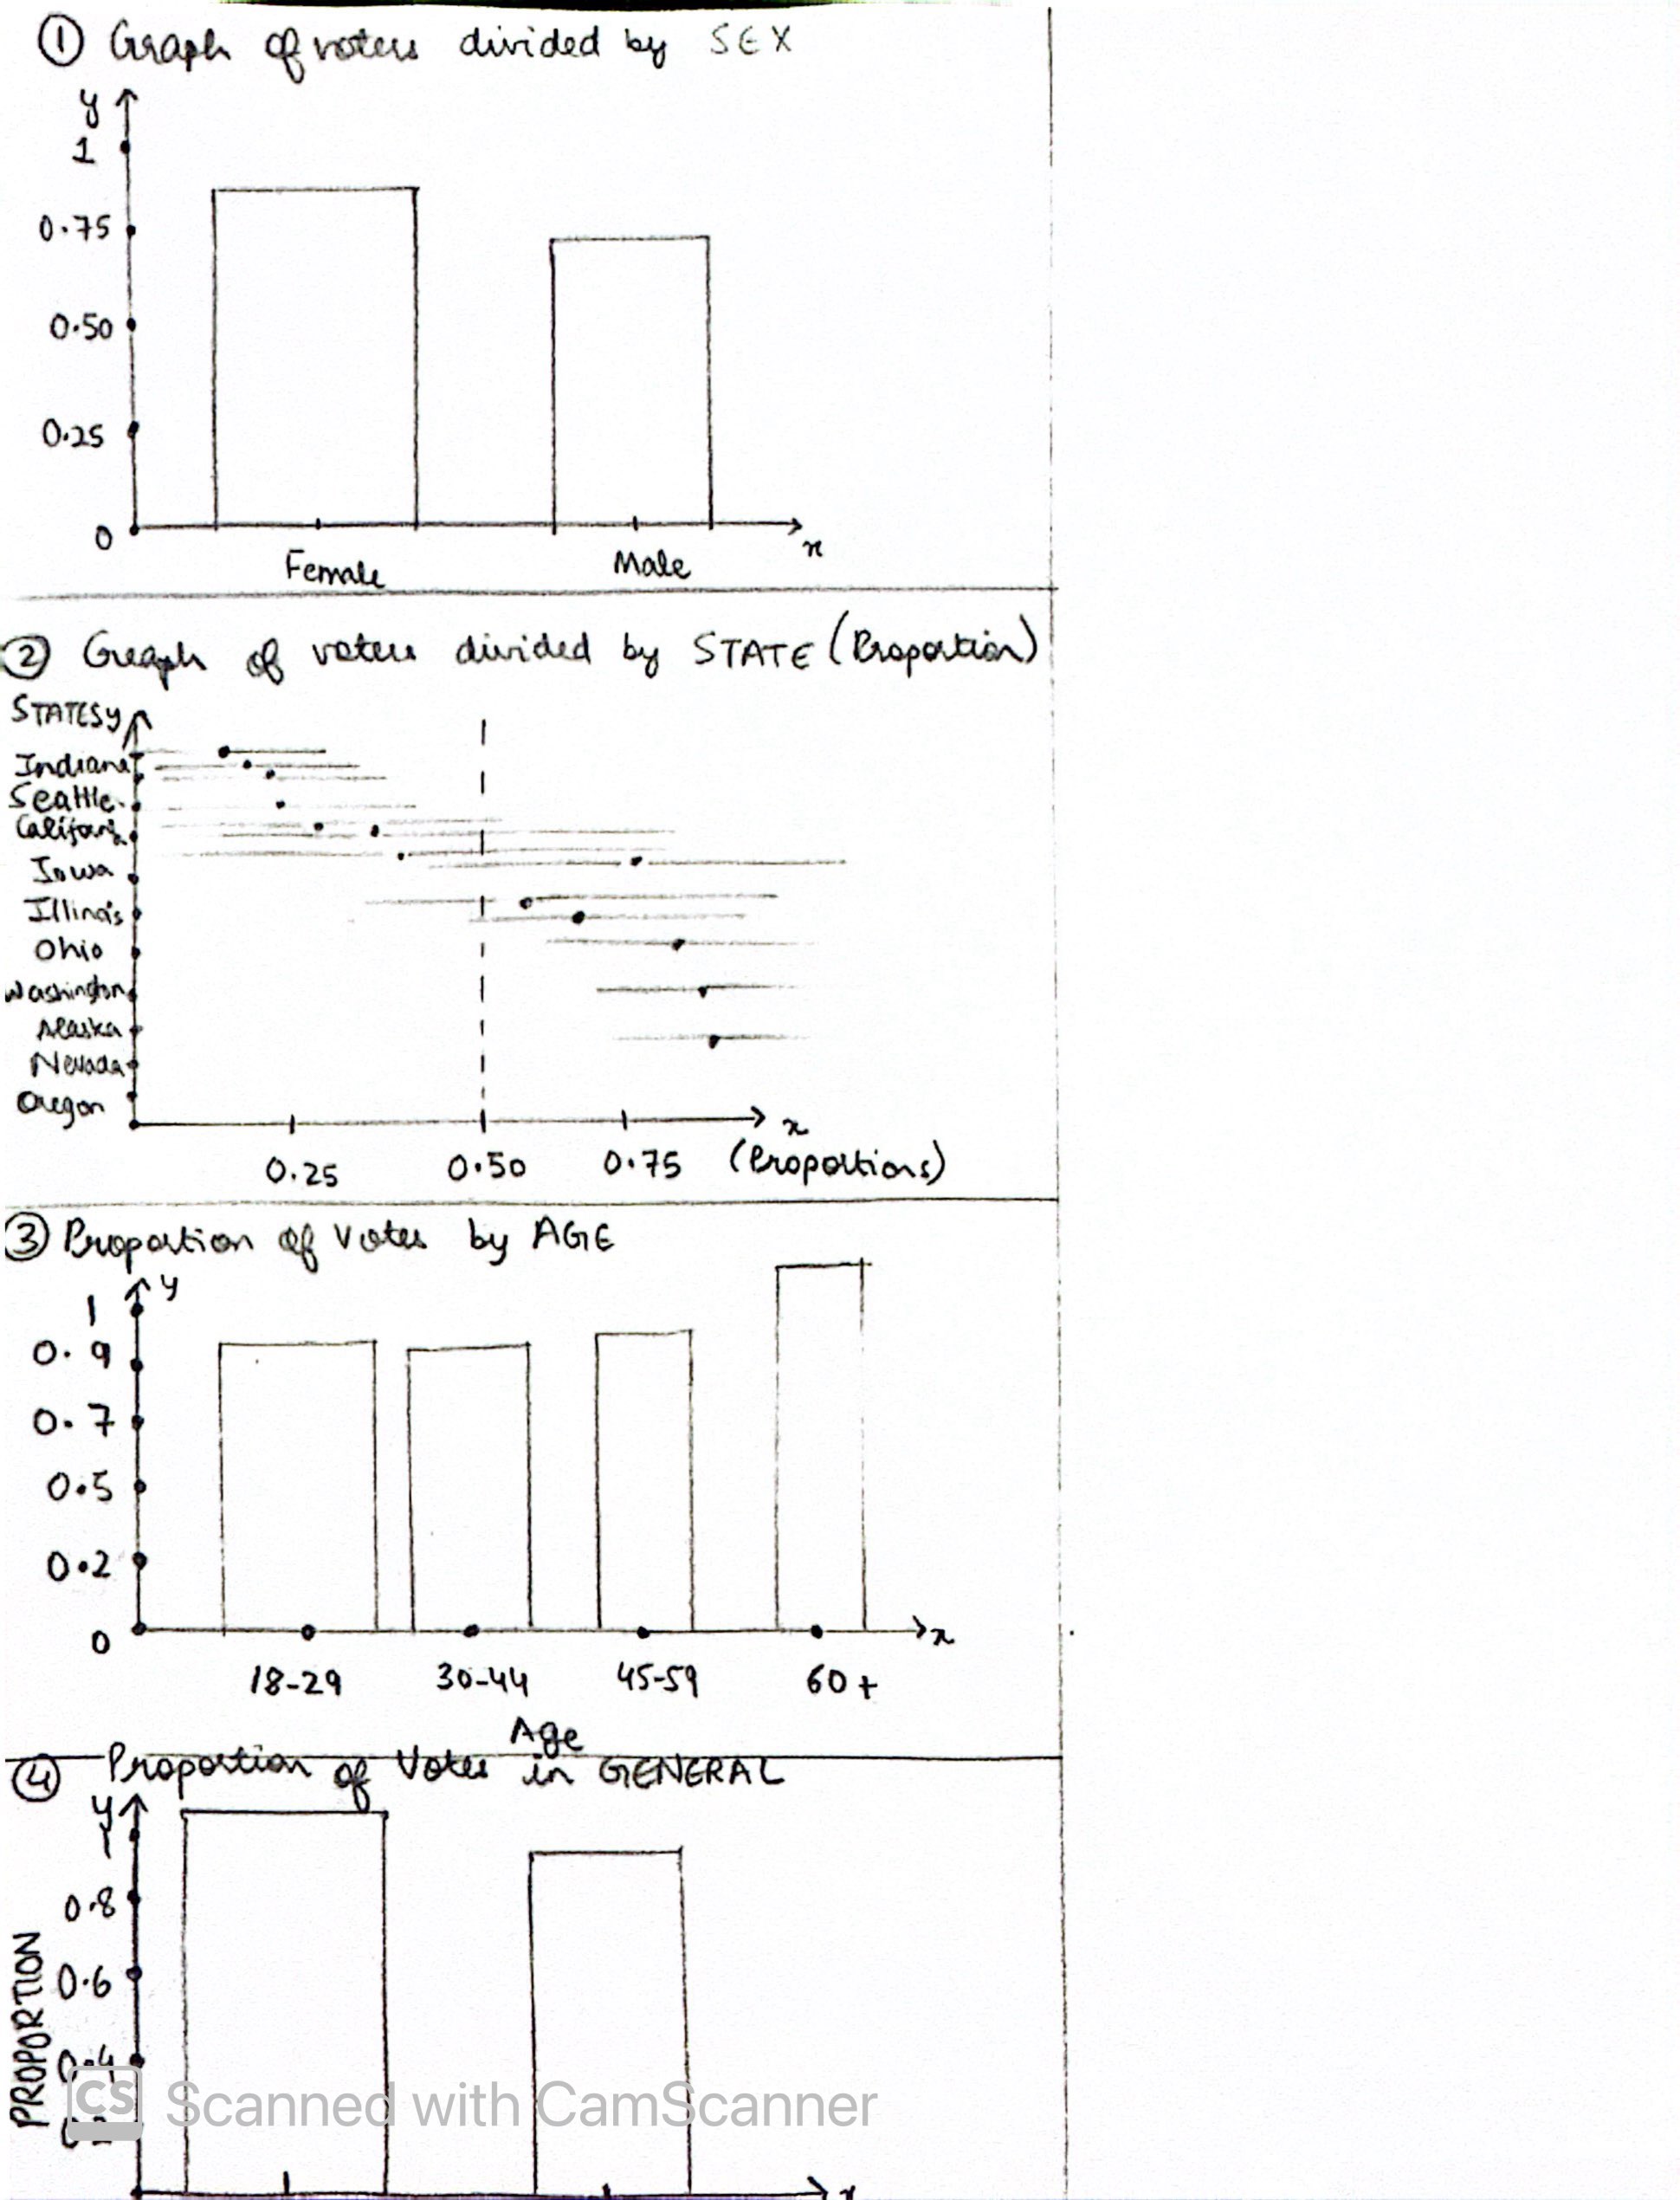 ① Graph of voters divided by SEX
y
1
0.75
0.50
0.25
0
x
Female Male
② Graph of voters divided by STATE (Proportion)
STATES y
Indiana
Seattle
California
Iowa
Illinois
Ohio
Washington
Alaska
Nevada
Oregon
x
0.25 0.50 0.75 (Proportions)
③ Proportion of Votes by AGE
y
1
0.9
0.7
0.5
0.2
0
x
18-29 30-44 45-59 60+
Age
④ Proportion of Votes in GENERAL
y
1
0.8
0.6
0.4
0.2
PROPORTION
x
CS Scanned with CamScanner